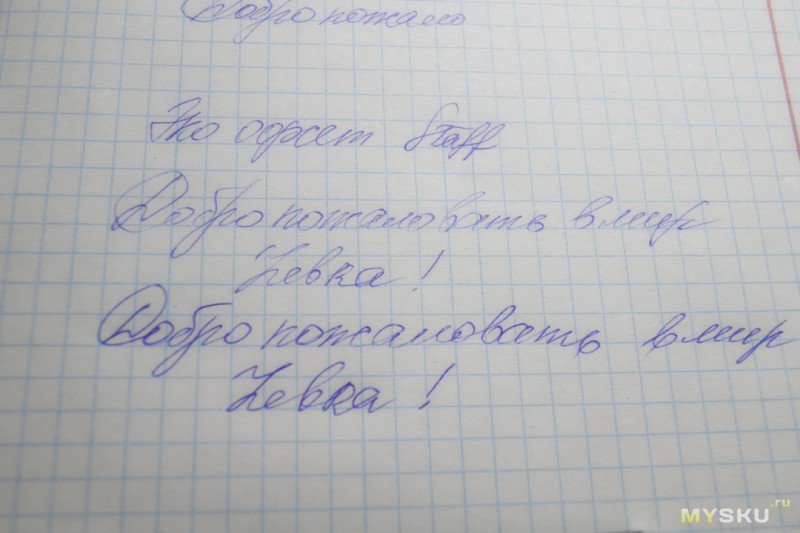 Добро пожало
Эко офсет Staff
Добро пожаловать в мир
Зевка!
Добро пожаловать в мир
Зевка!
MYSKU.ru